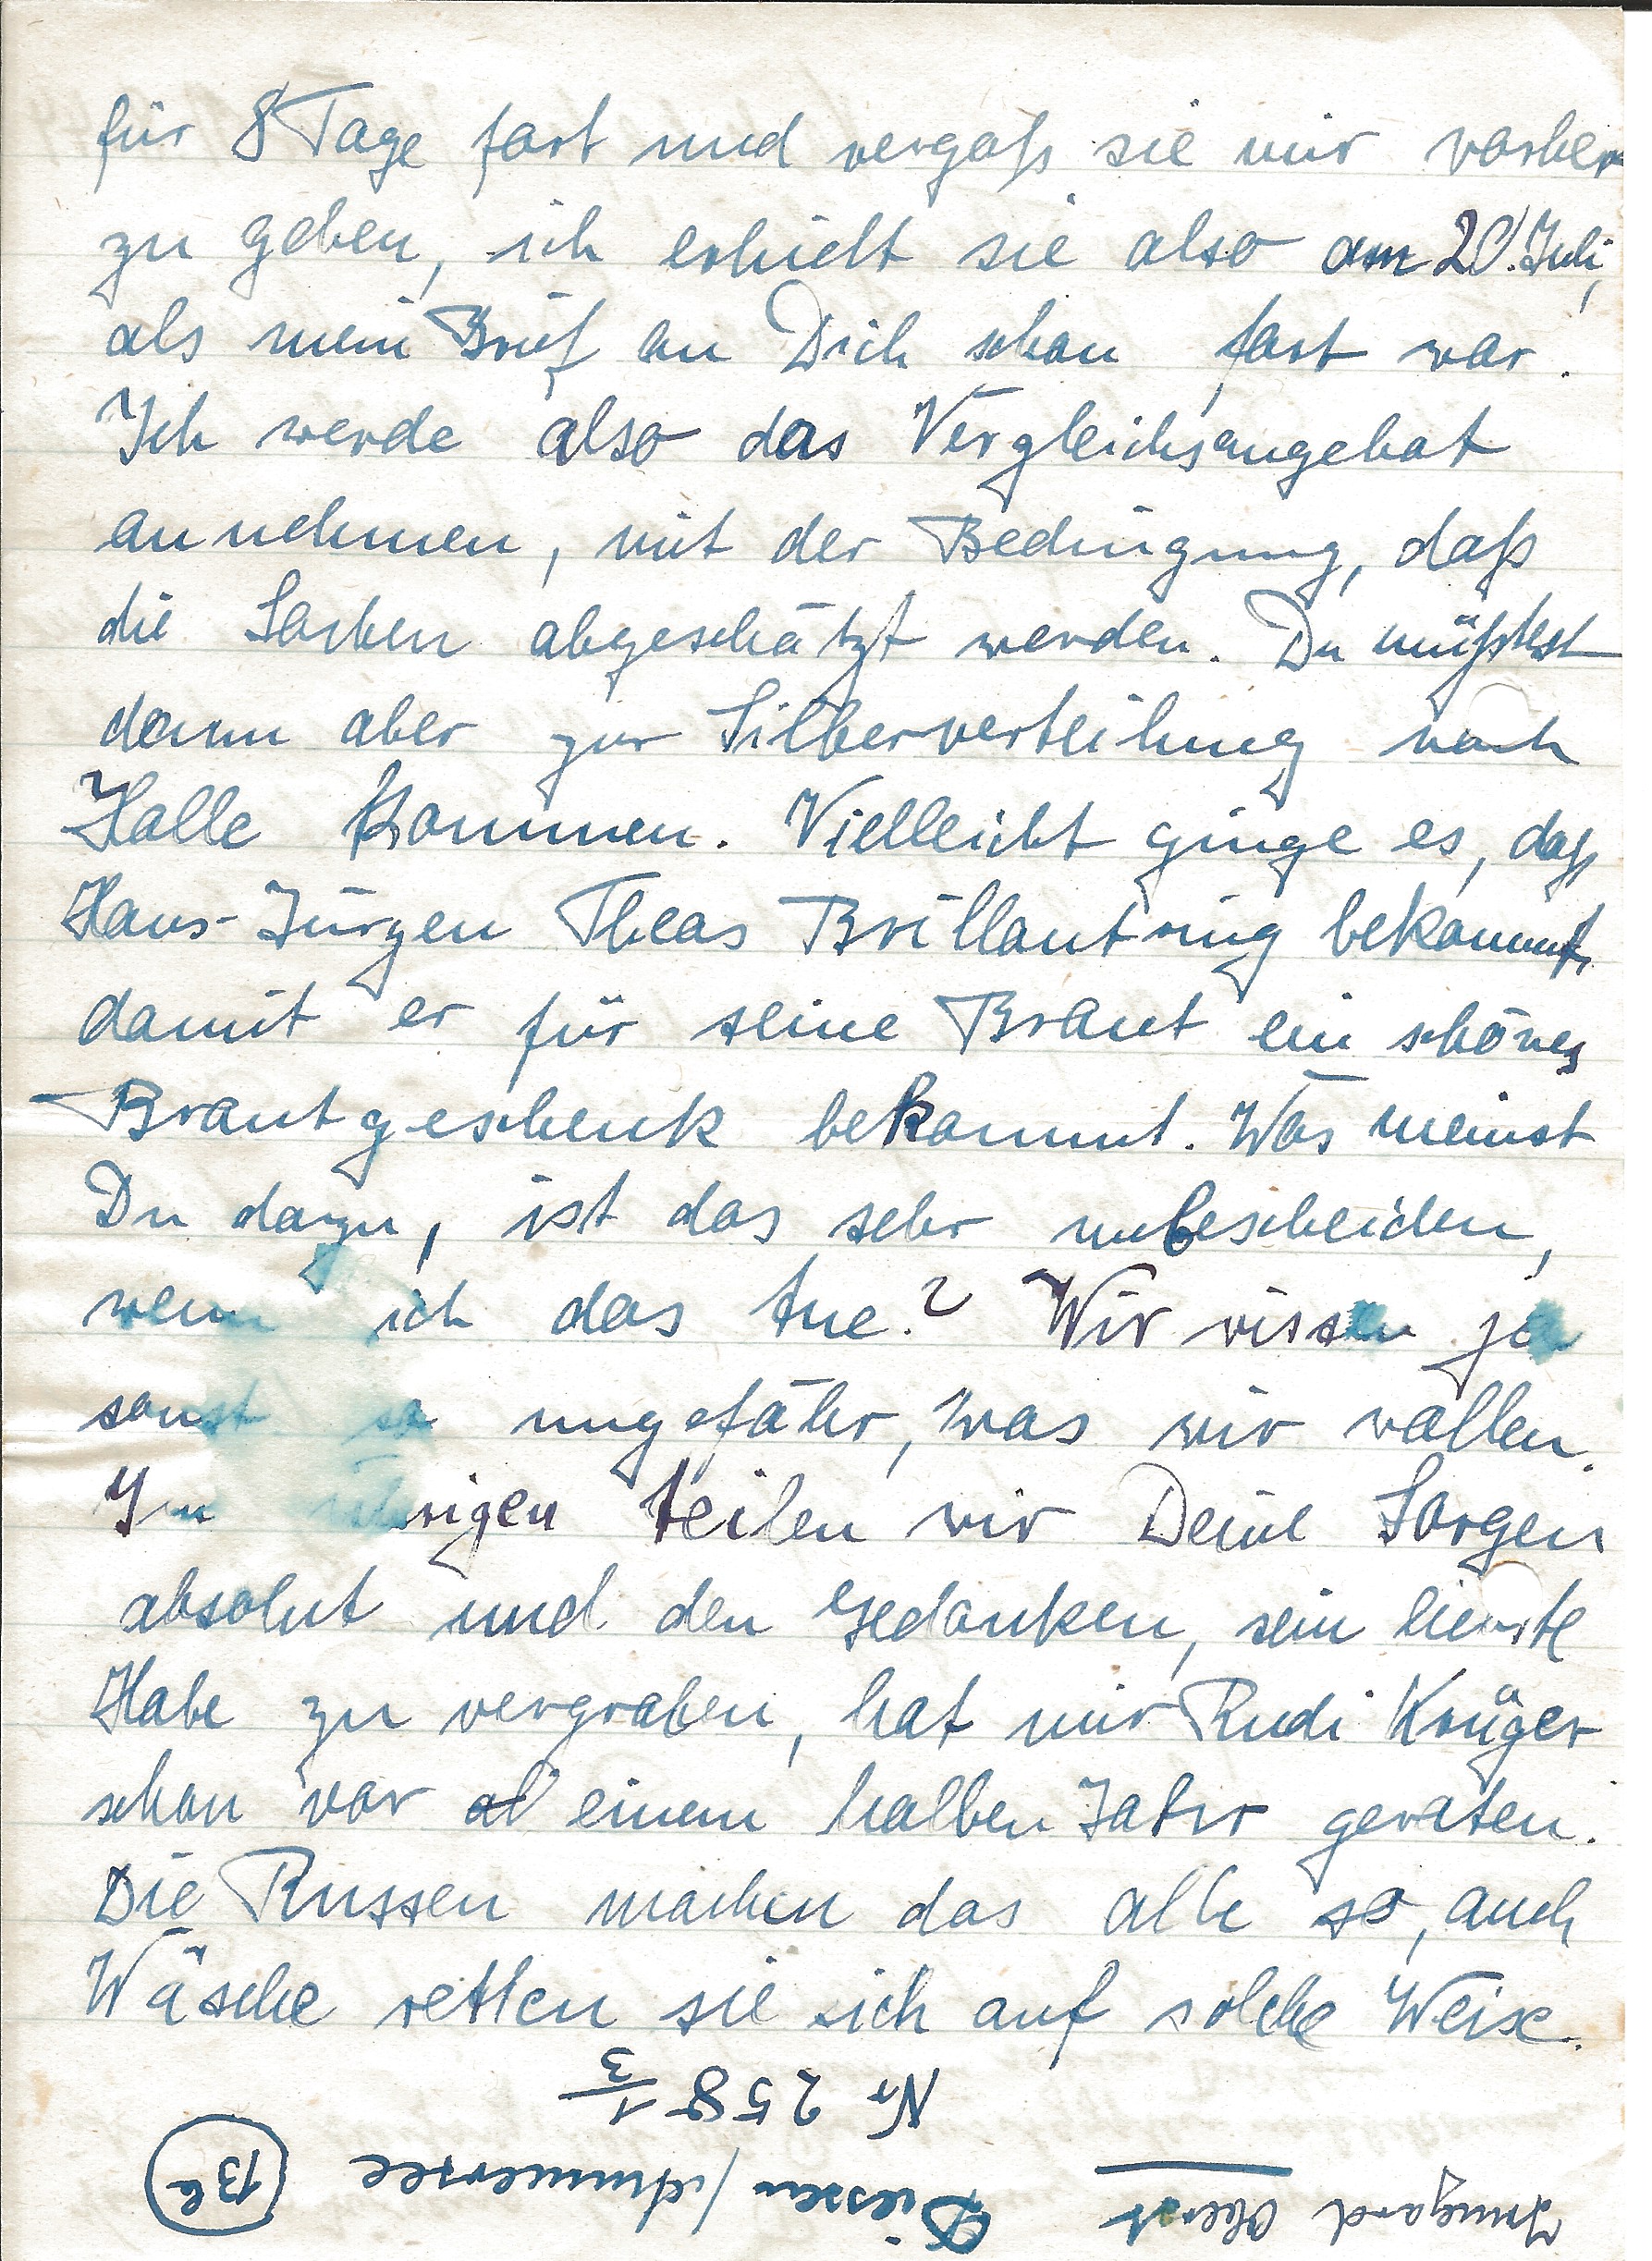 für 8 Tage fort und vergaß sie mir vorher
zu geben, ich erhielt sie also am 20. Juli,
als mein Brief an Dich schon fort war.
Ich werde also das Vergleichsangebot
annehmen, mit der Bedingung, daß
die Sachen abgeschätzt werden. Du müßtest
dann aber zur Silberverteilung nach
Halle kommen. Vielleicht ginge es, daß
Hans-Jürgen Theas Brillantring bekommt,
damit er für seine Braut ein schönes
Brautgeschenk bekommt. Was meinst
Du dazu, ist das sehr unbescheiden,
wenn ich das tue? Wir wissen ja
sonst so ungefähr, was wir wollen.
Im übrigen teilen wir Deine Sorgen
absolut und den Gedanken, sein
Habe zu vergraben, hat mir Rudi Krüger
schon vor einem halben Jahr geraten.
Die Russen machen das alle so, auch
Wäsche retten sie sich auf solche Weise.
Irmgard Oberst
Diessen / Ammersee (13b)
Nr 258 1/3